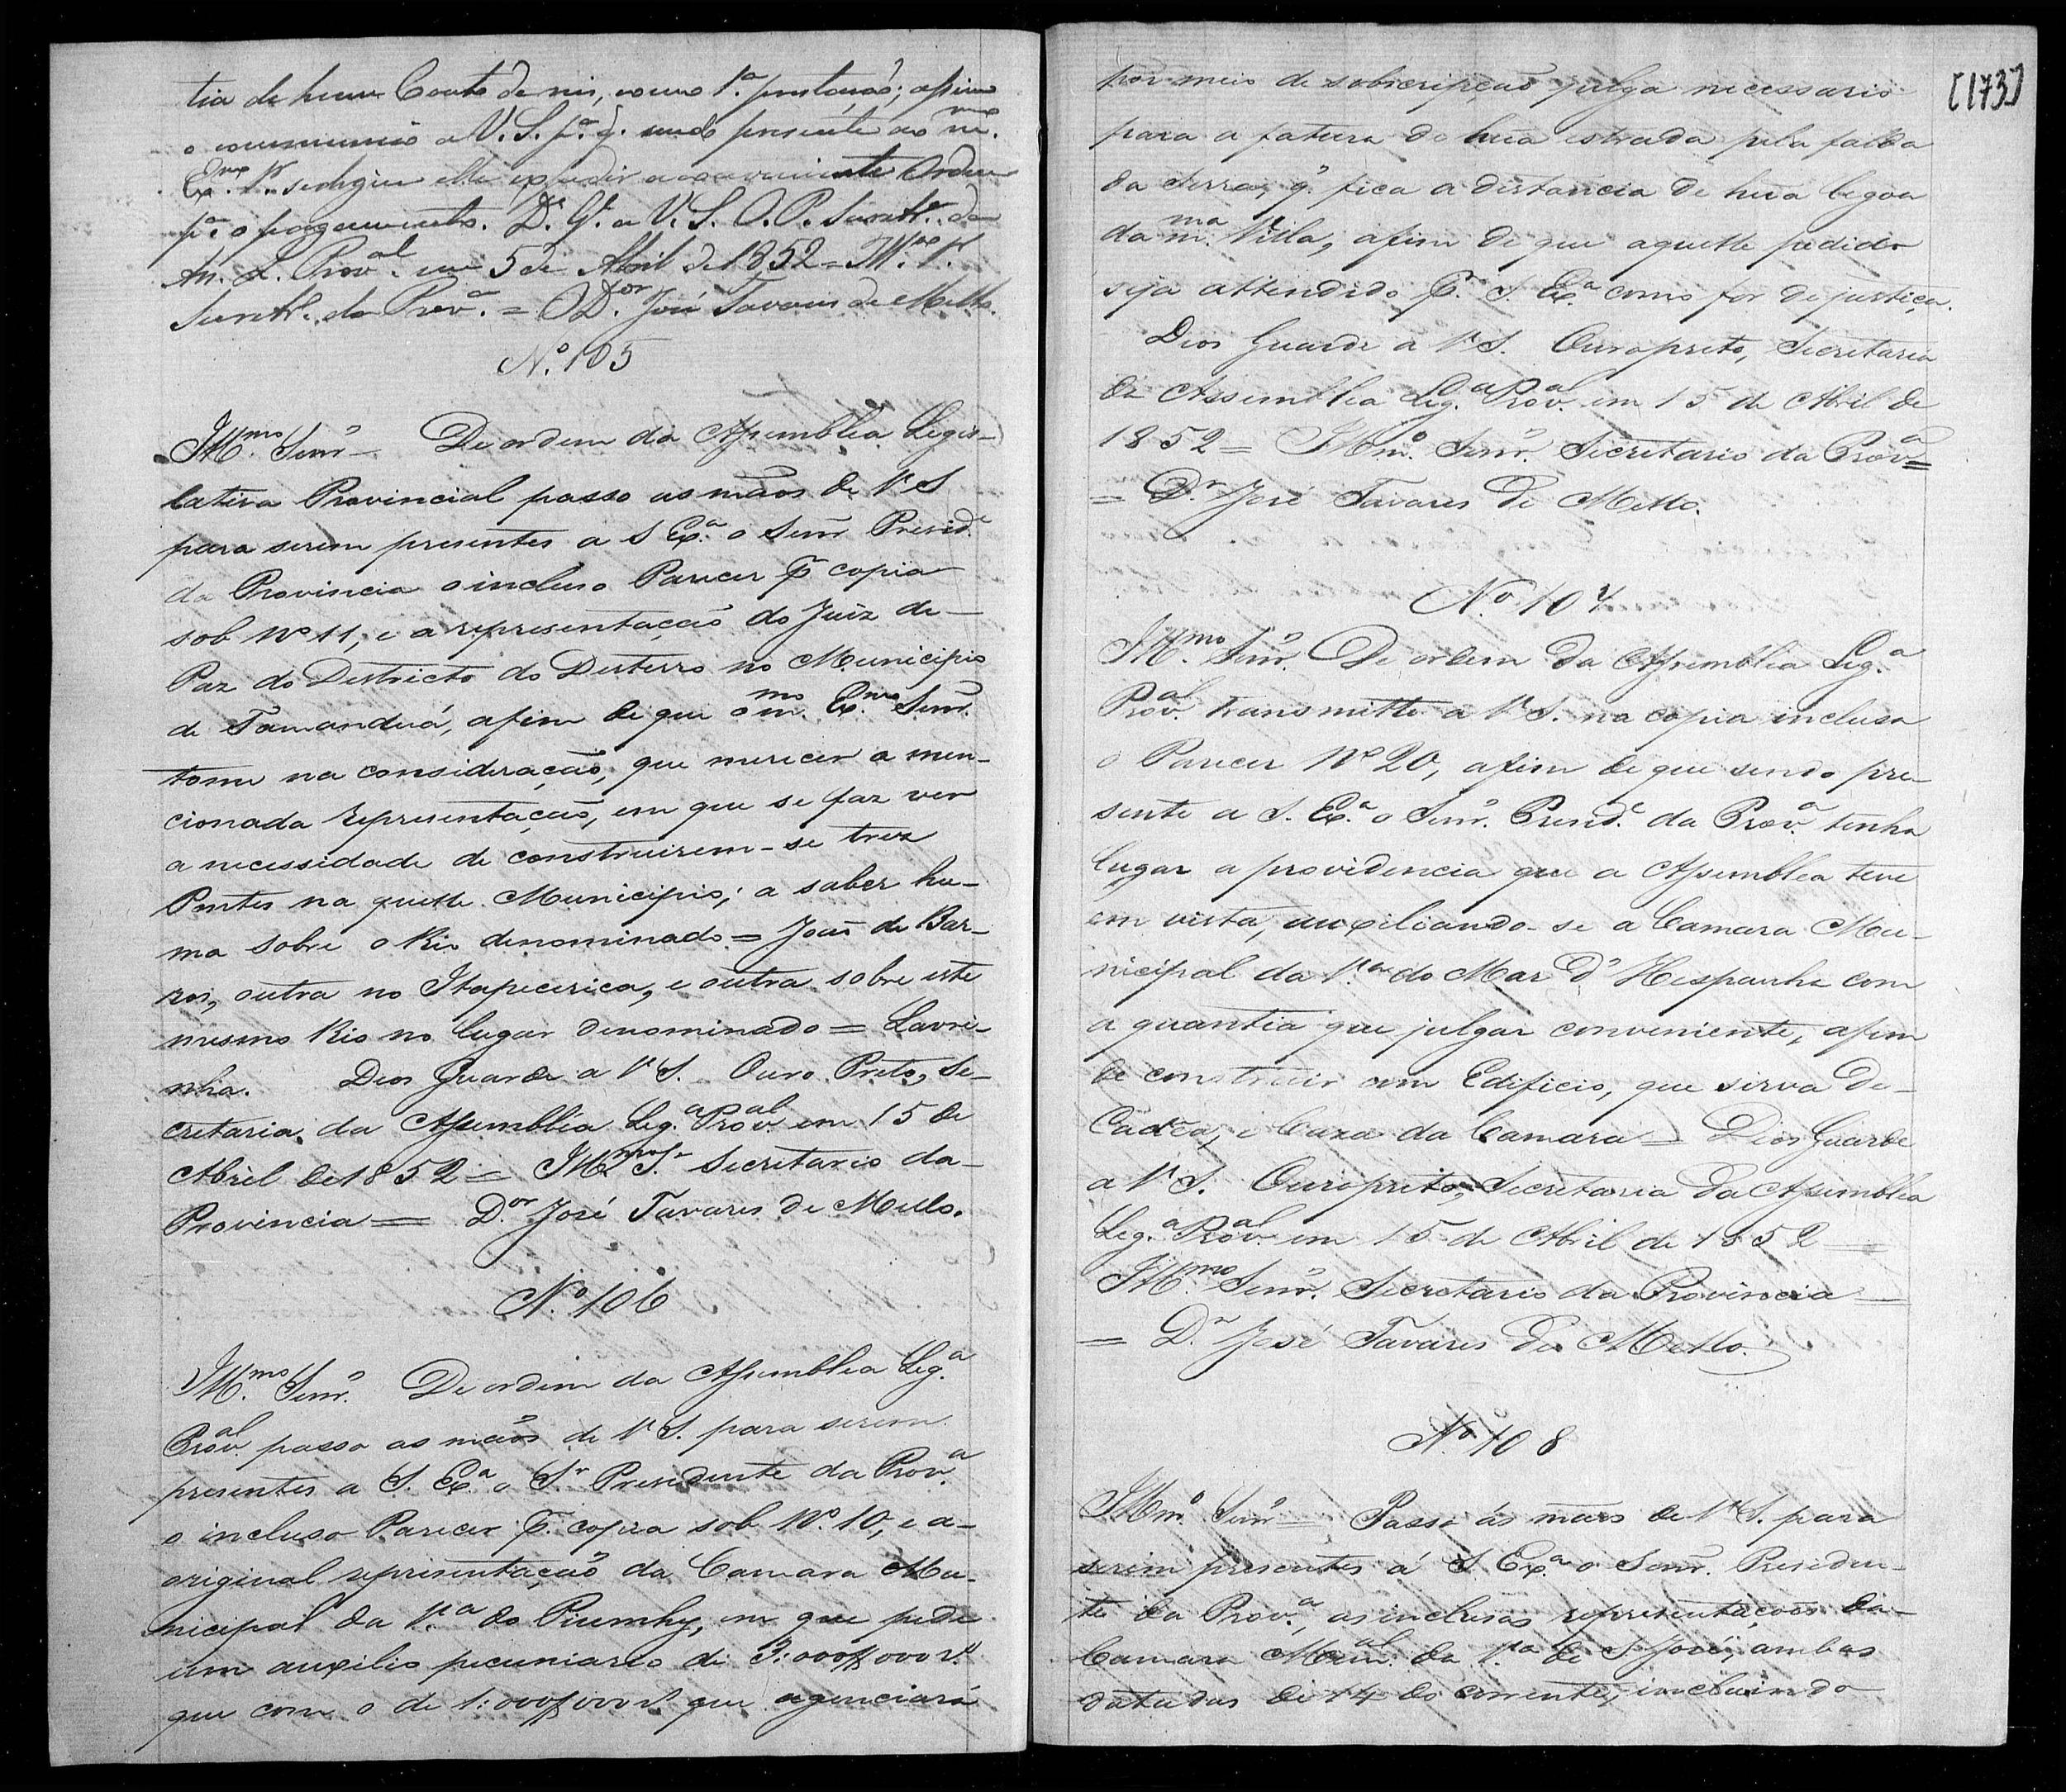 tia de hum Conto de reis, como 1.ª prestação; assim
o communico a V. S. p.ª q. sendo presente ao m.mo
Ex.mo Sr. se digne elle expedir a conveniente Ordem
p.ª o pagamento. D.s G.e a V. S. O. P. Secretr.ª da
As. L. Prov.al em 5 de Abril de 1852 = Ill.mo Sr.
Secretr.º da Prov.ª = O D.or José Tavares de Mello.
N.º 105
Ill.mo Senr̃ — De ordem da Assemblea Legis-
lativa Provincial passo as mãos de V S
para serem presentes a S Ex.ª o Senr̃ Presid.e
da Provincia o incluso Parecer p.r copia
sob Nº 11, e a representação do Juiz de
Paz do Districto do Desterro no Municipio
de Tamanduá, afim de que o m.mo Ex.mo Senr̃.
tome na consideração, que merecer a men-
cionada representação, em que se faz ver
a necessidade de construirem-se trez
Pontes na quelle Municipio; a saber hu-
ma sobre o Rio denominado = João de Bar-
ros, outra no Itapecerica, e outra sobre este
mesmo Rio no lugar denominado = Lavri-
nha. Deos Guarde a V S. Ouro Preto, Se-
cretaria da Assemblea Leg.ª Prov.al em 15 de
Abril de 1852 = Ill.mo S.r Secretario da
Provincia = D.or José Tavares de Mello.
N.º 106
Ill.mo Senr̃. De ordem da Assemblea Leg.ª
Prov.al passo as mãos de V S. para serem
presentes a S. Ex.ª o S.r Presidente da Prov.ª
o incluso Parecer p.r copia sob Nº. 10, e a
original representação da Camara Mu-
nicipal da V.ª do Piumhy, em que pede
um auxilio pecuniario de 3:000$000 r.s
que com o de 1:000$000 r.s que agenciará
[173]
por meio de sobscripção julga necessario
para a fatura de hua estrada pela falda
da Serra, q.' fica a distancia de hua legoa
da m.ma Villa, afim de que aquelle pedido
seja attendido p.r S. Ex.ª como for de justiça.
Deos Guarde a V S. Ouropreto, Secretaria
da Assemblea Leg.ª Prov.al em 15 de Abril de
1852 = Illm.º Senr̃. Secretario da Prov.ª =
= D.r José Tavares de Mello.
N.º 107
Ill.mo Senr̃. De ordem da Assemblea Leg.ª
Prov.al transmitto a V S. na copia inclusa
o Parecer Nº 20, afim de que sendo pre-
sente a S. Ex.ª o Senr̃. Presid.e da Prov.ª tenha
lugar a providencia que a Assemblea teve
em vista, auxiliando-se a Camara Mu-
nicipal da V.ª do Mar d'Hespanha com
a quantia que julgar conveniente, afim
de construir um Edificio, que sirva de
Cadêa, e Caza da Camara = Deos Guarde
a V S. Ouropreto, Secretaria da Assemblea
Leg.ª Prov.al em 15 de Abril de 1852 =
Ill.mo Senr̃. Secretario da Provincia =
= D.r José Tavares de Mello.
N.º 108
Illm.º Senr̃ = Passo ás maos de V S. para
serem presentes á S. Ex.ª o Senr̃. Presiden-
te da Prov.ª, as inclusas representaçoes da
Camara M.al da V.ª de S José, ambas
datadas de 14 do corrente, incluindo